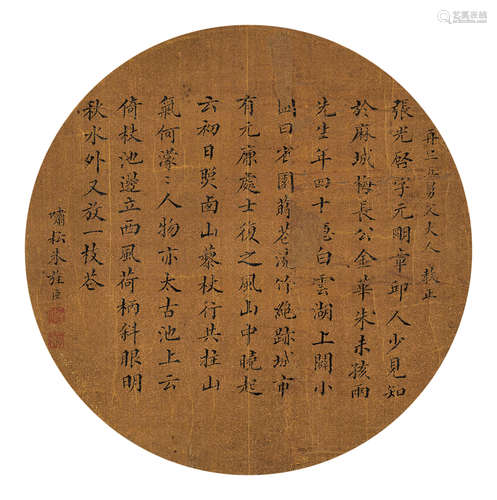 教正
張光啓字元明章邱人少見知
於麻城梅長公金華朱未孩兩
先生年四十隱白雲湖上闢小
園曰省園蒔花澆竹絕跡城市
有元康處士復之風山中曉起
云初日照南山藜杖行共拄山
氣何濛〻人物亦太古池上云
倚杖池邊立西風荷柄斜眼明
秋水外又放一枝花
嘯松朱臣
在线